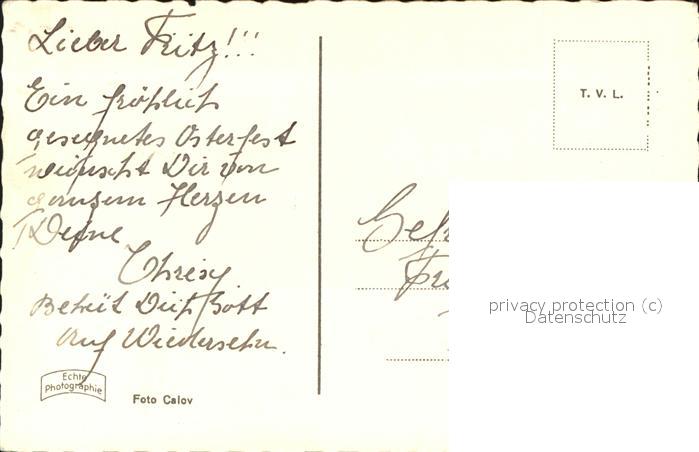 Lieber Fritz!!!
Ein fröhlich
gesegnetes Osterfest
wünscht Dir von
ganzem Herzen
Deine
Chresy
Behüt Dich Gott
Auf Wiedersehn.
Echte
Photographie
Foto Calov
T. V. L.
privacy protection (c)
Datenschutz